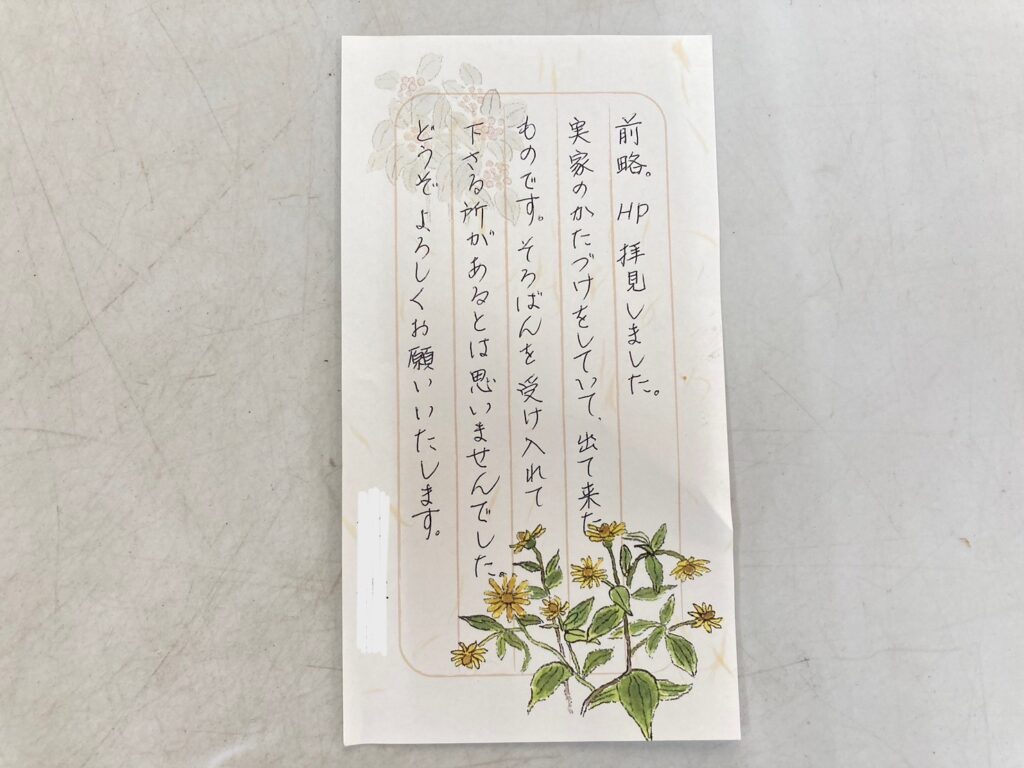 前略。 HP 拝見しました。
実家のかたづけをしていて、出て来た
ものです。そろばんを受け入れて
下さる所があるとは思いませんでした。
どうぞよろしくお願いいたします。